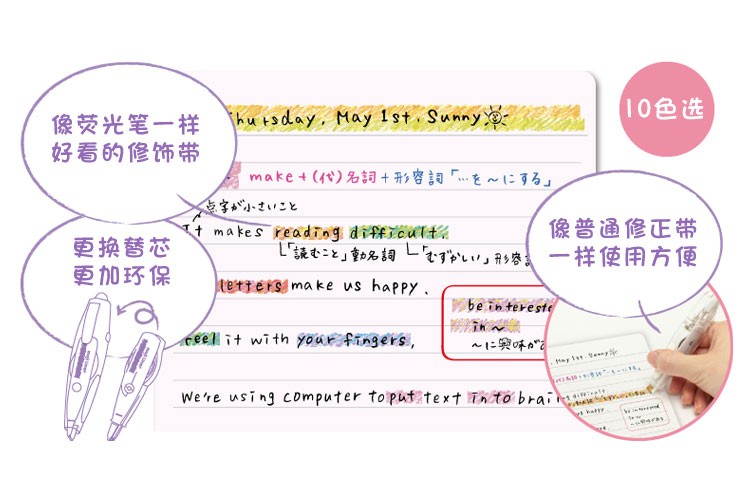 像荧光笔一样
好看的修饰带
10色选
Thursday, May 1st, Sunny
make+(代)名詞+形容詞「…を〜にする」
点字が小さいこと
It makes reading difficult.
「読むこと」動名詞 「むずかしい」形容詞
像普通修正带
一样使用方便
更换替芯
更加环保
letters make us happy.
be interested
in 〜
〜に興味が
feel it with your fingers,
We're using computer to put text into brai